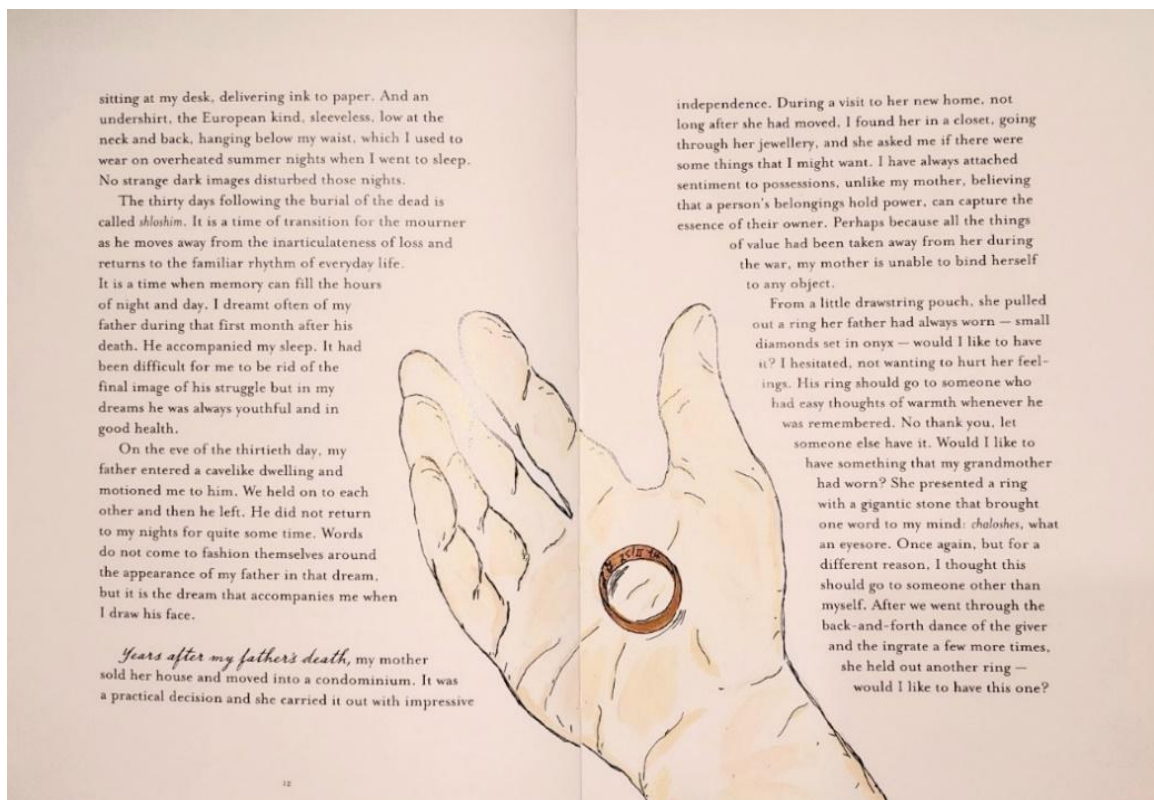 sitting at my desk, delivering ink to paper. And an
undershirt, the European kind, sleeveless, low at the
neck and back, hanging below my waist, which I used to
wear on overheated summer nights when I went to sleep.
No strange dark images disturbed those nights.
The thirty days following the burial of the dead is
called shloshim. It is a time of transition for the mourner
as he moves away from the inarticulateness of loss and
returns to the familiar rhythm of everyday life.
It is a time when memory can fill the hours
of night and day. I dreamt often of my
father during that first month after his
death. He accompanied my sleep. It had
been difficult for me to be rid of the
final image of his struggle but in my
dreams he was always youthful and in
good health.
On the eve of the thirtieth day, my
father entered a cavelike dwelling and
motioned me to him. We held on to each
other and then he left. He did not return
to my nights for quite some time. Words
do not come to fashion themselves around
the appearance of my father in that dream,
but it is the dream that accompanies me when
I draw his face.
Years after my father's death, my mother
sold her house and moved into a condominium. It was
a practical decision and she carried it out with impressive
12
independence. During a visit to her new home, not
long after she had moved, I found her in a closet, going
through her jewellery, and she asked me if there were
some things that I might want. I have always attached
sentiment to possessions, unlike my mother, believing
that a person's belongings hold power, can capture the
essence of their owner. Perhaps because all the things
of value had been taken away from her during
the war, my mother is unable to bind herself
to any object.
From a little drawstring pouch, she pulled
out a ring her father had always worn — small
diamonds set in onyx — would I like to have
it? I hesitated, not wanting to hurt her feel-
ings. His ring should go to someone who
had easy thoughts of warmth whenever he
was remembered. No thank you, let
someone else have it. Would I like to
have something that my grandmother
had worn? She presented a ring
with a gigantic stone that brought
one word to my mind: chaloshes, what
an eyesore. Once again, but for a
different reason, I thought this
should go to someone other than
myself. After we went through the
back-and-forth dance of the giver
and the ingrate a few more times,
she held out another ring —
would I like to have this one?